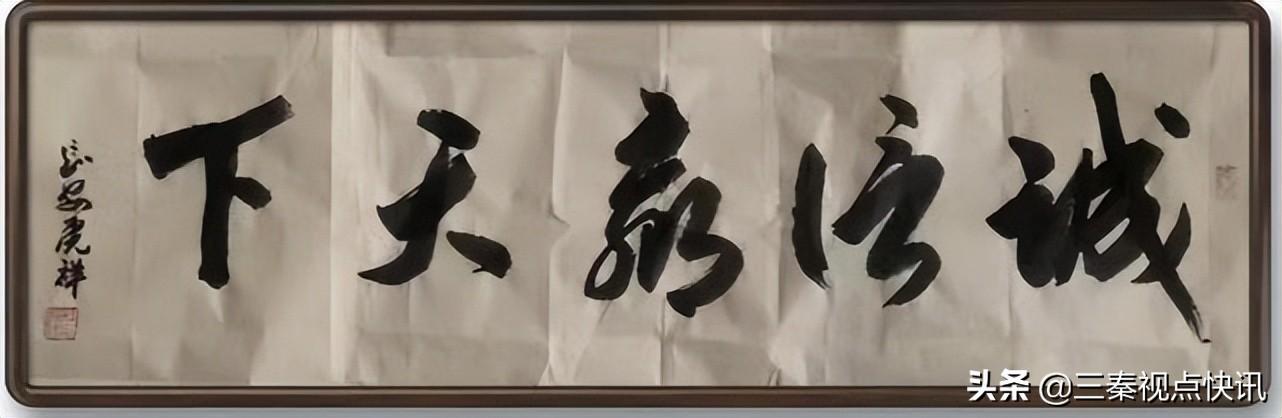 诚信赢天下
长安虎祥
头条 @三秦视点快讯